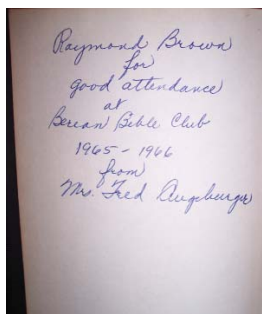 Raymond Brown
for
good attendance
at
Berean Bible Club
1965-1966
from
Mrs. Fred Augsburger